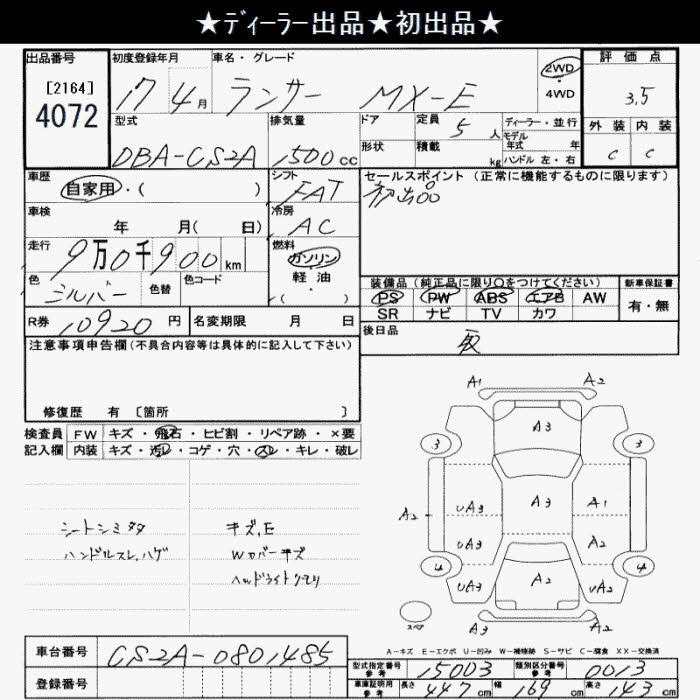 ★ディーラー出品★初出品★
出品番号 [2164] 4072
初度登録年月 17年4月
車名・グレード ランサー MX-E
2WD ・ 4WD
評価点 3.5
外装 内装
C C
型式 DBA-CS2A
排気量 1500cc
ドア 形状
定員 5人
積載 kg
ディーラー・並行
モデル年式 年
ハンドル 左・右
車歴 自家用・( )
車検 年 月( 日)
走行 9万0千900km
色 シルバー 色替 色コード
シフト FAT
冷房 AC
燃料 ガソリン・軽油・( )
セールスポイント(正常に機能するものに限ります)
初出品
装備品(純正品に限り○をつけてください) 新車保証書
PS PW ABS エアB AW 有・無
SR ナビ TV カワ
後日品 取
R券 10920円 名変期限 月 日
注意事項申告欄(不具合内容等は具体的に記入して下さい)
修復歴 有 〔箇所 〕
検査員 FW キズ・飛石・ヒビ割・リペア跡・×要
記入欄 内装 キズ・汚レ・コゲ・穴・スレ・キレ・破レ
シートシミ
ハンドルスレ,ハゲ
キズ,E
Wカバーキズ
ヘッドライトクモリ
A1 A2
A3
3 3
UA3 A3 A1
A2 A2
UA3 A2
4 4
UA3 A2 UA2
A3 A2
スペア
A-キズ E-エクボ U-凹み W-補修跡 S-サビ C-腐食 XX-交換済
車台番号 CS2A-0801485
登録番号
型式指定番号 参考 15003 類別区分番号 参考 0013
車庫証明用 参考 長さ 447cm 幅 169cm 高さ 143cm